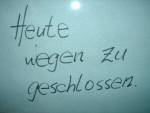 Heute
wegen zu
geschlossen.